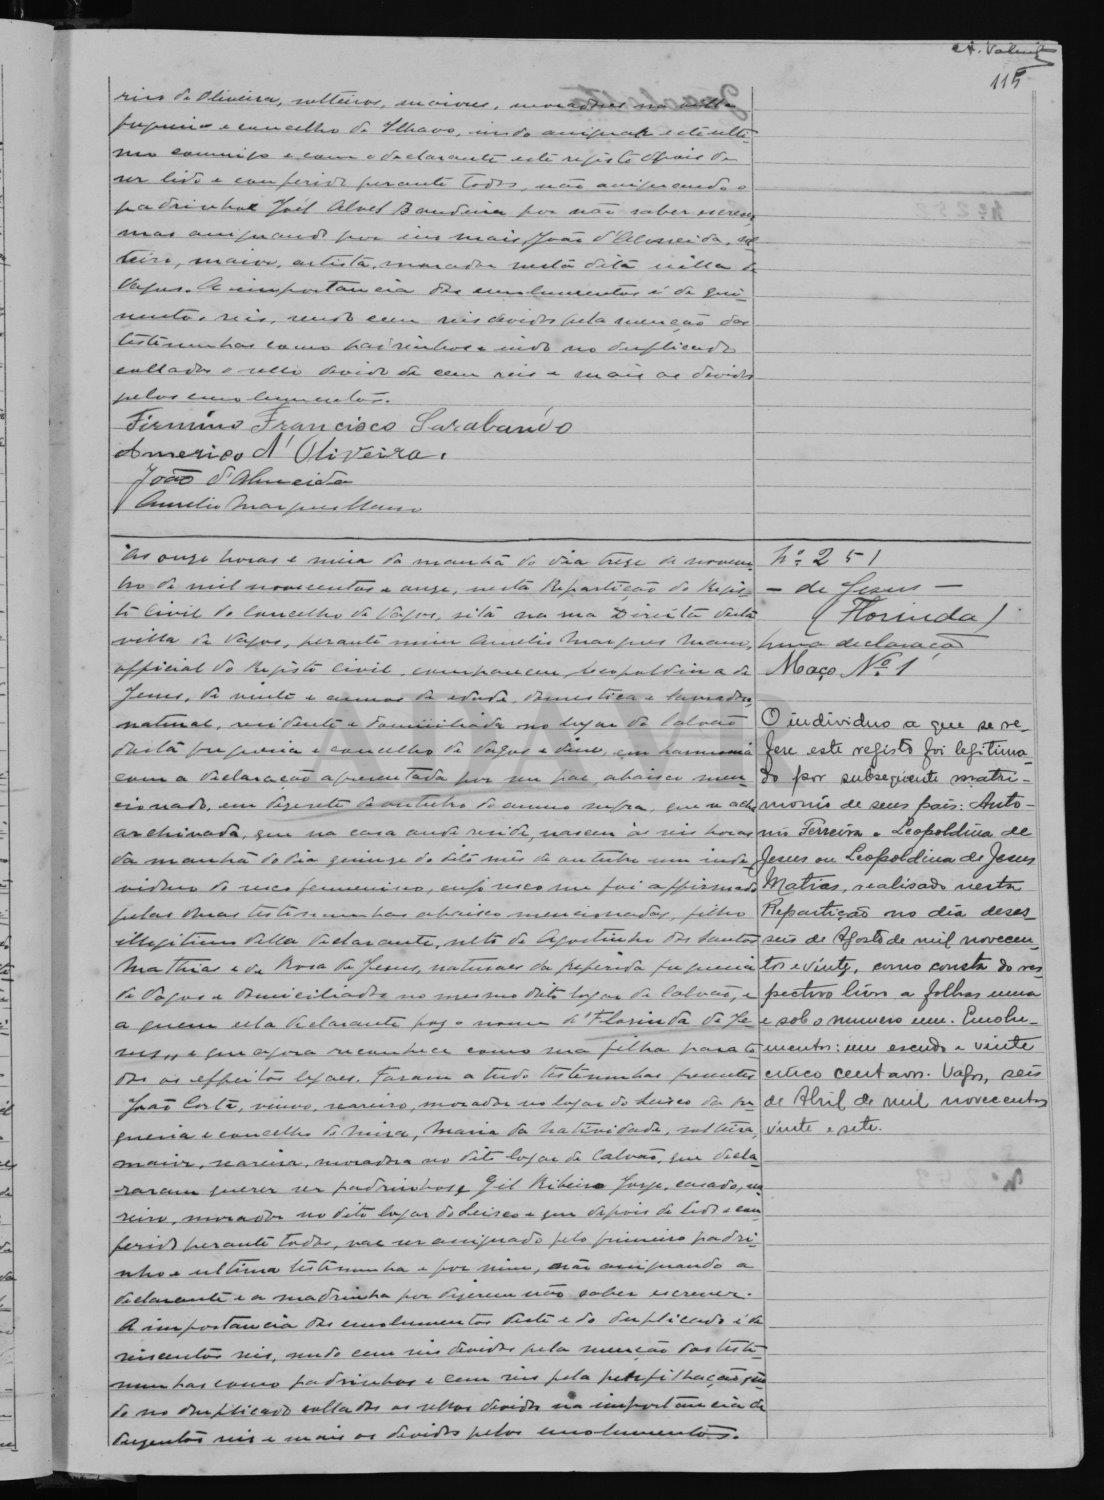 A. Valente
115
rino de Oliveira, solteiros, maiores, moradores na villa
freguesia e concelho de Ilhavo, indo assignar este ulti-
mo commigo e com o declarante este registo depois de
ser lido e conferido perante todos, não assignando o
padrinho José Alves Bandeira por não saber escrever,
mas assignando por seu mais João d'Almeida, sol-
teiro, maior, artista, morador nesta dita villa de
Vagos. A importancia dos emolumentos é de qui-
nhentos reis, sendo cem reis devidos pela menção das
testemunhas como padrinhos e indo no duplicado
collados o sello devido de cem reis e mais os devidos
pelos emolumentos.
Firmino Francisco Sarabando
Americo d'Oliveira.
João d'Almeida
Aurelio Marques Mano
Às onze horas e meia da manhã do dia treze de novem-
bro de mil novecentos e onze, nesta Repartição do Regis-
to Civil do Concelho de Vagos, sita na rua Direita desta
villa de Vagos, perante mim Aurelio Marques Mano,
official do Registo Civil, compareceu Leopoldina de
Jesus, de vinte e annos de edade, domestica e
natural, residente e domiciliada no lugar de Calvão
desta freguesia e concelho de Vagos e disse, em harmonia
com a declaração apresentada por seu pae, abaixo men-
cionado, em dezesete de outubro do anno supra, que se acha
archivada, que na casa onde reside, nasceu às seis horas
da manhã do dia quinze do dito mês de outubro um indi-
viduo do sexo femenino, cujo sexo me foi affirmado
pelas duas testemunhas abaixo mencionadas, filho
illigitimo della declarante, neto de Agostinho dos Santos
Mathias e de Rosa de Jesus, naturaes da referida freguesia
de Vagos e domiciliados no mesmo dito lugar de Calvão, e
a quem ella declarante poz o nome d'"Florinda de Je-
sus" e que agora reconhece como sua filha para to-
dos os effeitos legaes. Foram a tudo testemunhas presentes
João Costa, viuvo, seareiro, morador no lugar do Seixo da fre-
guesia e concelho de Mira, Maria da Natividade, solteira,
maior, seareira, moradora no dito lugar de Calvão, que decla-
raram querer ser padrinhos e Gil Ribeiro Jorge, casado, sea-
reiro, morador no dito lugar do Seixo e que depois de lido e con-
ferido perante todos, vae ser assignado pelo primeiro padri-
nho e ultima testemunha e por mim, não assignando a
declarante e a madrinha por dizerem não saber escrever.
A importancia dos emolumentos deste e do duplicado é de
seiscentos reis, sendo cem reis devidos pela menção das teste-
munhas como padrinhos e cem reis pela perfilhação, in-
do no duplicado collados os sellos devidos na importancia de
duzentos reis e mais os devidos pelos emolumentos.
Nº 251
- de Jesus -
(Florinda)
Uma declaração
Maço Nº 1
O individuo a que se re-
fere este registo foi legitima-
do por subsequente matri-
monio de seus pais: Anto-
nio Ferreira e Leopoldina de
Jesus ou Leopoldina de Jesus
Matias, realisado nesta
Repartição no dia dezes-
seis de Agosto de mil novecen-
tos e vinte, como consta do res-
pectivo livro a folhas uma
e sob o numero um. Emolu-
mentos: um escudo e vinte
cinco centavos. Vagos, seis
de Abril de mil novecentos
vinte e sete.